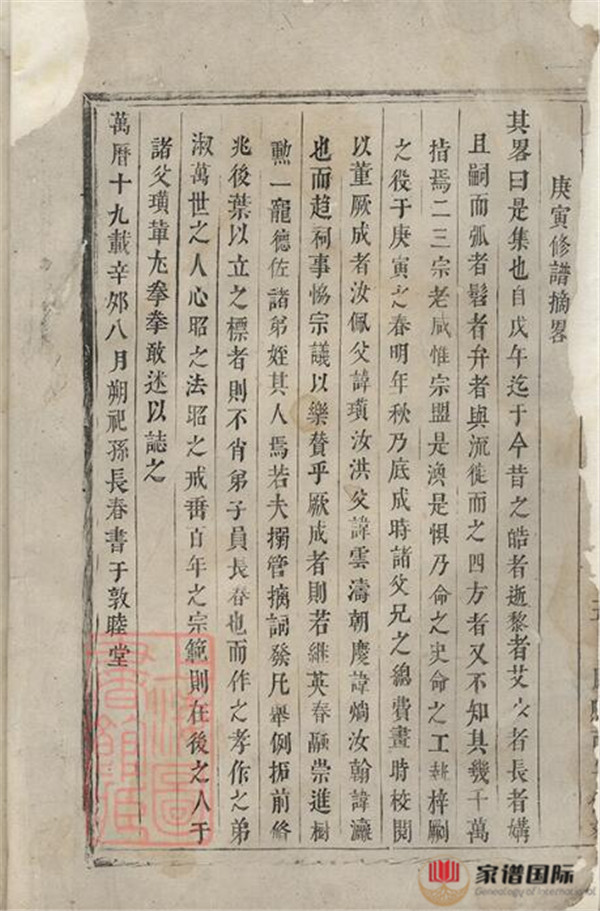 庚寅修譜摘畧
其畧曰是集也自戊午迄于今昔之皓者逝黎者艾少者長者媾
且嗣而弧者髫者弁者與流徙而之四方者又不知其幾千萬
指焉二三宗老咸惟宗盟是渙是懼乃命之史命之工耕梓劂
之役于庚寅之春明年秋乃底成時諸父兄之緫費畫時校閱
以董厥成者汝佩父諱璜汝洪父諱雲濤朝慶諱熵汝翰諱瀛
也而趋祠事恊宗議以樂賛乎厥成者則若継英春融崇進樹
勲一寵德佐諸弟姪其人焉若夫搦管摛詞發凡舉例振前脩
兆後葉以立之標者則不肖弟子員長春也而作之孝作之弟
淑萬世之人心昭之法昭之戒垂百年之宗範則在後之人于
諸父璜輩尤拳拳敢述以誌之
萬曆十九載辛夘八月朔祀孫長春書于敦睦堂
家谱国际
Genealogy of International